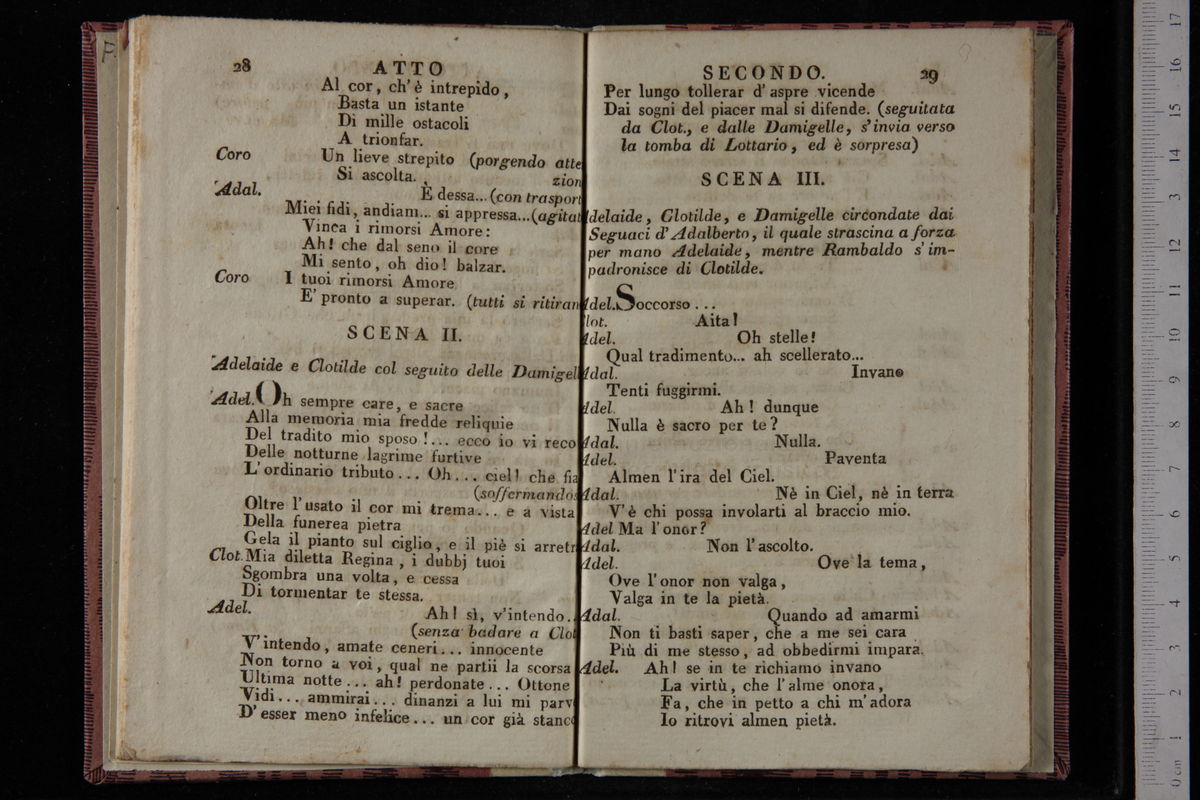 28
ATTO
Al cor, ch'è intrepido,
Basta un istante
Di mille ostacoli
A trionfar.
Coro Un lieve strepito (porgendo atte
Si ascolta. zion
Adal. È dessa... (con traspor
Miei fidi, andiam... si appressa...(agitat
Vinca i rimorsi Amore:
Ah! che dal seno il core
Mi sento, oh dio! balzar.
Coro I tuoi rimorsi Amore
E' pronto a superar. (tutti si ritiran
SCENA II.
Adelaide e Clotilde col seguito delle Damigel
Adel. Oh sempre care, e sacre
Alla memoria mia fredde reliquie
Del tradito mio sposo!... ecco io vi reco
Delle notturne lagrime furtive
L'ordinario tributo... Oh... ciel! che fia
(soffermandos
Oltre l'usato il cor mi trema... e a vista
Della funerea pietra
Gela il pianto sul ciglio, e il piè si arretr
Clot. Mia diletta Regina, i dubbj tuoi
Sgombra una volta, e cessa
Di tormentar te stessa.
Adel. Ah! sì, v'intendo..
(senza badare a Clot
V'intendo, amate ceneri... innocente
Non torno a voi, qual ne partii la scorsa
Ultima notte... ah! perdonate... Ottone
Vidi... ammirai... dinanzi a lui mi parve
D'esser meno infelice... un cor già stanco
SECONDO.
29
Per lungo tollerar d'aspre vicende
Dai sogni del piacer mal si difende. (seguitata
da Clot., e dalle Damigelle, s'invia verso
la tomba di Lottario, ed è sorpresa)
SCENA III.
delaide, Clotilde, e Damigelle circondate dai
Seguaci d'Adalberto, il quale strascina a forza
per mano Adelaide, mentre Rambaldo s'im-
padronisce di Clotilde.
del. Soccorso...
lot. Aita!
del. Oh stelle!
Qual tradimento... ah scellerato...
dal. Invano
Tenti fuggirmi.
del. Ah! dunque
Nulla è sacro per te?
Adal. Nulla.
del. Paventa
Almen l'ira del Ciel.
Adal. Nè in Ciel, nè in terra
V'è chi possa involarti al braccio mio.
Adel Ma l'onor?
Adal. Non l'ascolto.
Adel. Ove la tema,
Ove l'onor non valga,
Valga in te la pietà.
Adal. Quando ad amarmi
Non ti basti saper, che a me sei cara
Più di me stesso, ad obbedirmi impara.
Adel. Ah! se in te richiamo invano
La virtù, che l'alme onora,
Fa, che in petto a chi m'adora
Io ritrovi almen pietà.